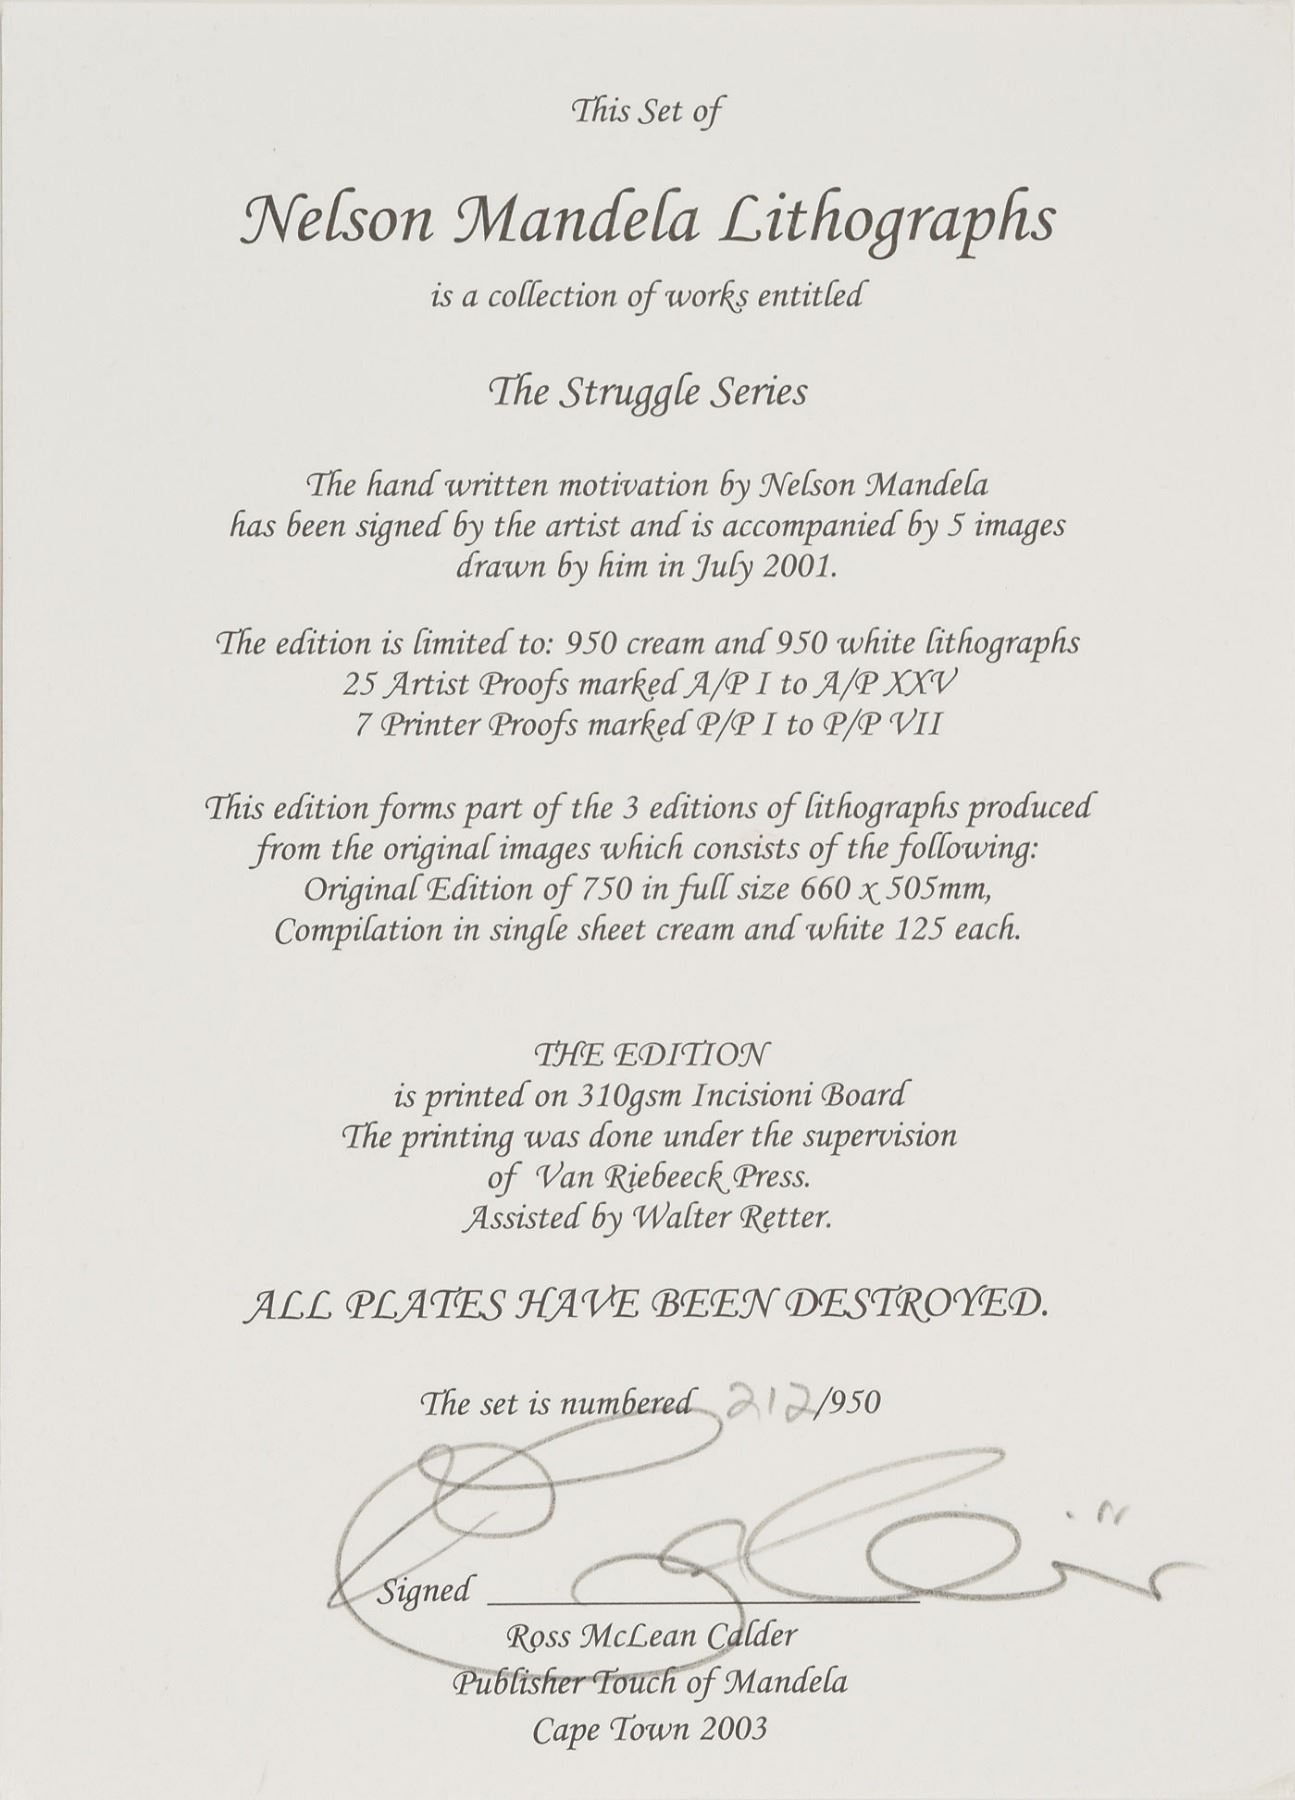 This Set of
Nelson Mandela Lithographs
is a collection of works entitled
The Struggle Series
The hand written motivation by Nelson Mandela
has been signed by the artist and is accompanied by 5 images
drawn by him in July 2001.
The edition is limited to: 950 cream and 950 white lithographs
25 Artist Proofs marked A/P I to A/P XXV
7 Printer Proofs marked P/P I to P/P VII
This edition forms part of the 3 editions of lithographs produced
from the original images which consists of the following:
Original Edition of 750 in full size 660 x 505mm,
Compilation in single sheet cream and white 125 each.
THE EDITION
is printed on 310gsm Incisioni Board
The printing was done under the supervision
of Van Riebeeck Press.
Assisted by Walter Retter.
ALL PLATES HAVE BEEN DESTROYED.
The set is numbered 212/950
Signed
Ross McLean Calder
Publisher Touch of Mandela
Cape Town 2003